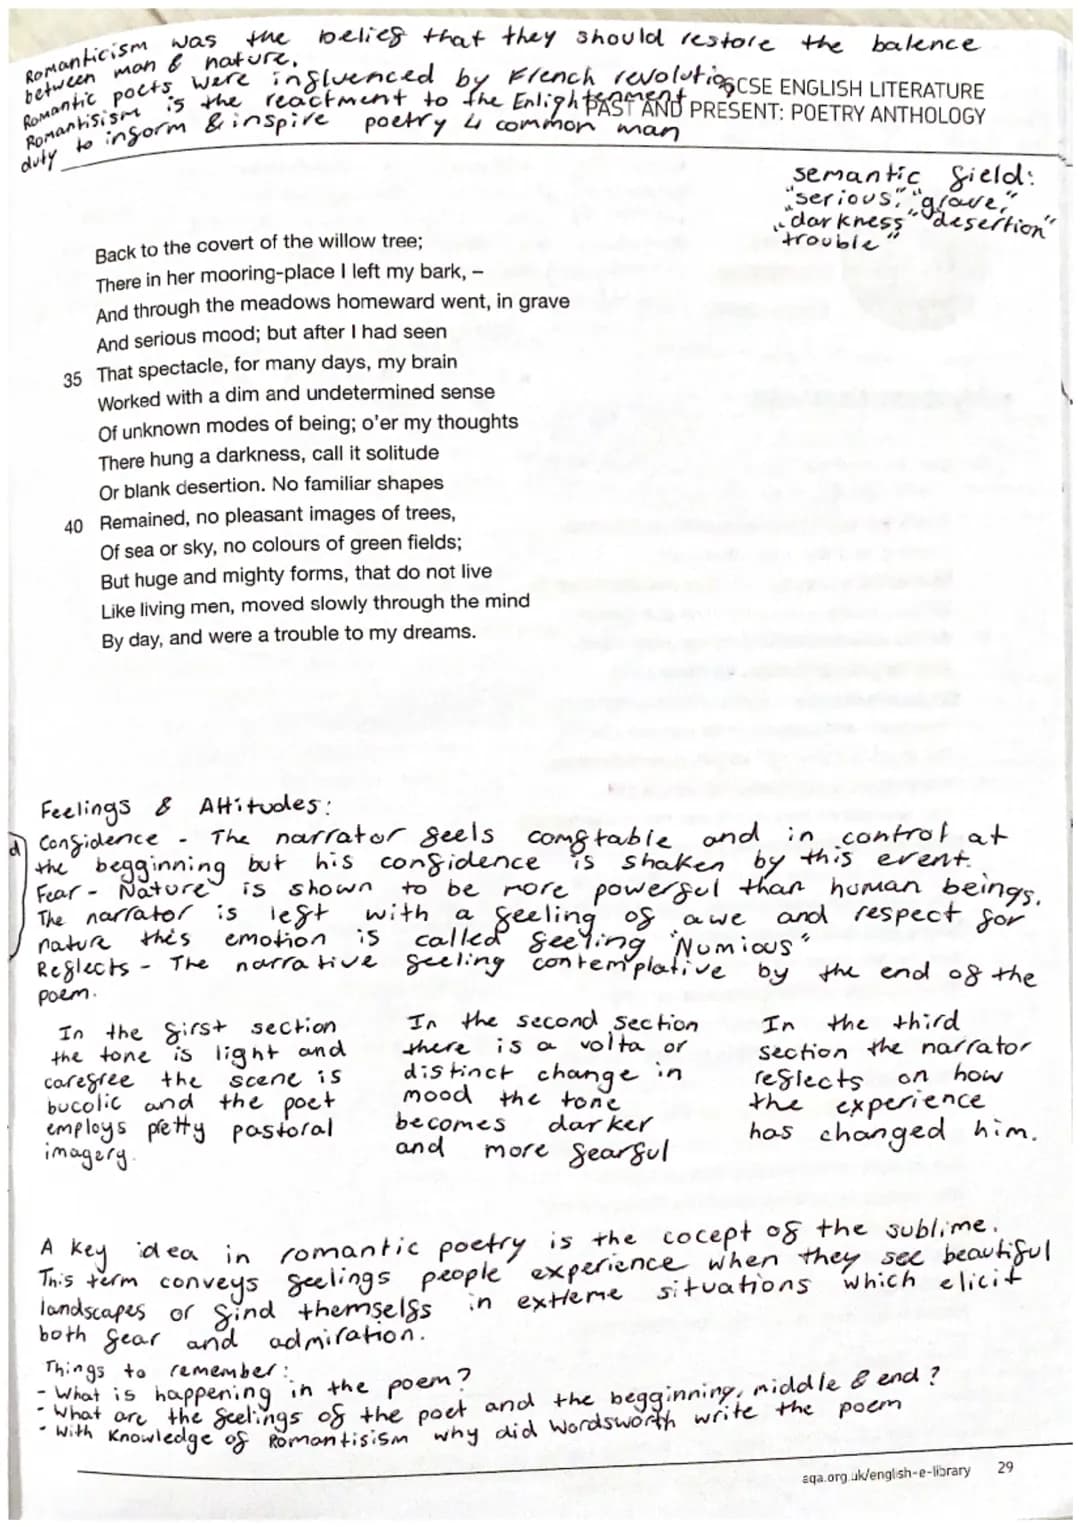 Romanticism was the belief that they should restore the balence
between man & nature.
Romantic poets were influenced by French revolution
GCSE ENGLISH LITERATURE
Romantisism is the reactment to the Enlightenment
PAST AND PRESENT: POETRY ANTHOLOGY
duty to inform & inspire poetry 4 common man
semantic field:
"serious", "grave,"
"darkness" "desertion"
"trouble"
Back to the covert of the willow tree;
There in her mooring-place I left my bark, –
And through the meadows homeward went, in grave
And serious mood; but after I had seen
35 That spectacle, for many days, my brain
Worked with a dim and undetermined sense
Of unknown modes of being; o'er my thoughts
There hung a darkness, call it solitude
Or blank desertion. No familiar shapes
40 Remained, no pleasant images of trees,
Of sea or sky, no colours of green fields;
But huge and mighty forms, that do not live
Like living men, moved slowly through the mind
By day, and were a trouble to my dreams.
Feelings & Attitudes:
Confidence - The narrator feels comftable and in control at
the begginning but his confidence is shaken by this event.
Fear - Nature is shown to be more powerful than human beings.
The narrator is left with a feeling of awe and respect for
nature this emotion is called feeling "Numious"
Reflects - The narrative feeling contemplative by the end of the
poem.
In the first section
the tone is light and
carefree the scene is
bucolic and the poet
employs pretty pastoral
imagery.
In the second section
there is a volta or
distinct change in
mood the tone
becomes darker
and more fearful
In the third
section the narrator
reflects on how
the experience
has changed him.
A key idea in romantic poetry is the cocept of the sublime.
This term conveys feelings people experience when they see beautiful
landscapes or find themselfs in extreme situations which elicit
both fear and admiration.
Things to remember:
- What is happening in the poem?
- What are the feelings of the poet and the begginning, middle & end?
- With Knowledge of Romantisism why did Wordsworth write the poem
aqa.org.uk/english-e-library 29